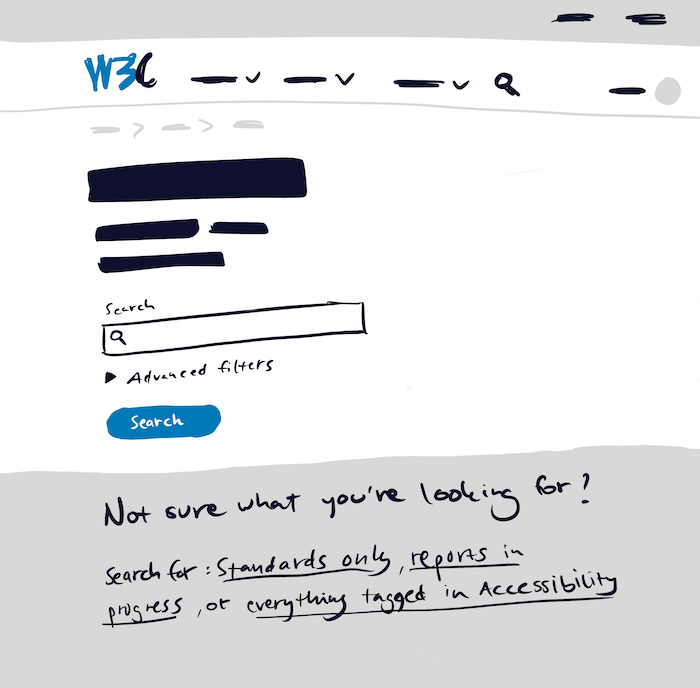 W3C
Search
Advanced filters
Search
Not sure what you're looking for?
Search for: Standards only, reports in
progress, or everything tagged in Accessibility